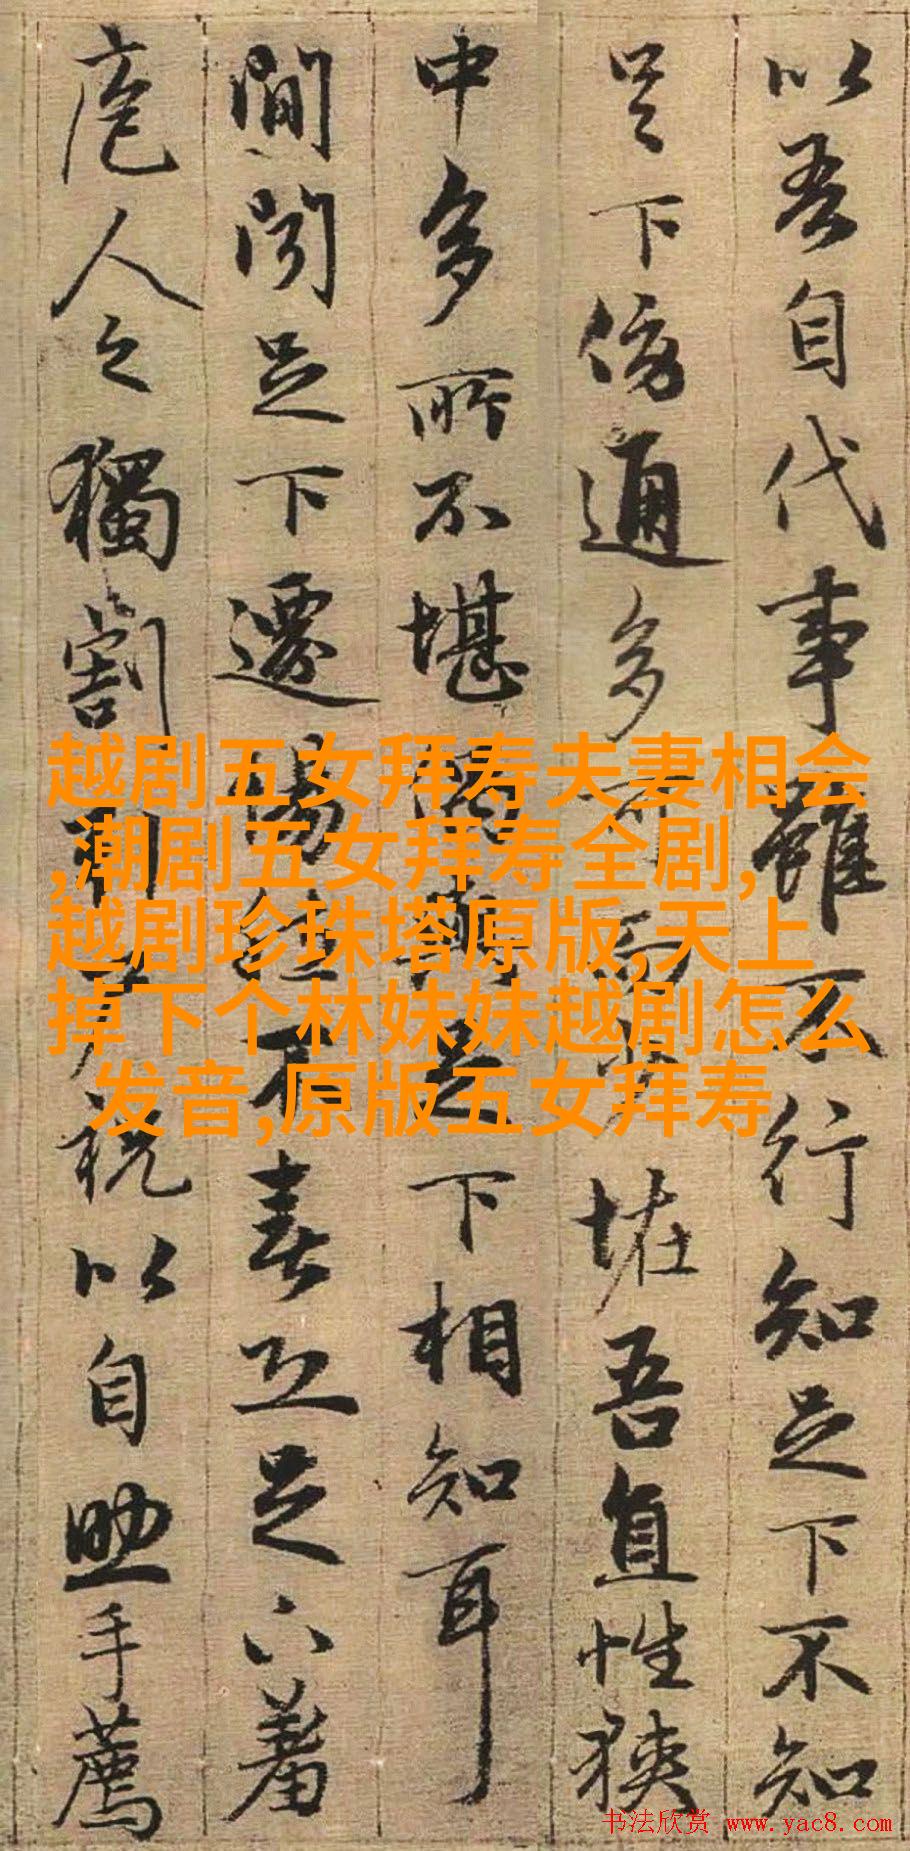 以吾自代事雖不行知足下不知
足下傍通多可而少恠吾直性狹
中多所不堪偶與足下相知耳
間聞足下遷惕然不喜恐足下羞
庖人之獨割引尸祝以自助手薦
越剧五女拜寿夫妻相会
,潮剧五女拜寿全剧,
越剧珍珠塔原版,天上
掉下个林妹妹越剧怎么
发音,原版五女拜寿
书法欣赏 www.yac8.com